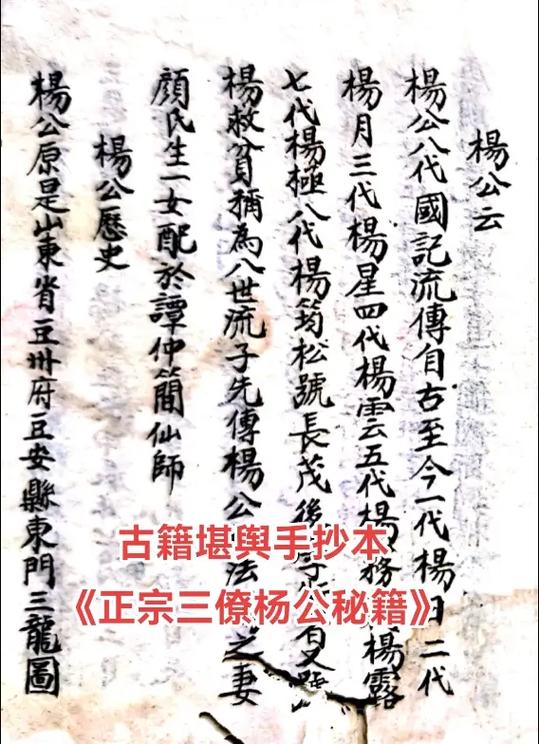 楊公云
楊公八代國記流傳自古至今一代楊日二代
楊月三代楊星四代楊雲五代楊務楊露
七代楊極八代楊筠松號長茂後
楊救貧稱為八世流子先傳楊公法之妻
顏氏生一女配於譚仲簡仙師
楊公歷史
楊公原是山東省豆州府豆安縣東門三龍圖
古籍堪舆手抄本
《正宗三僚杨公秘籍》